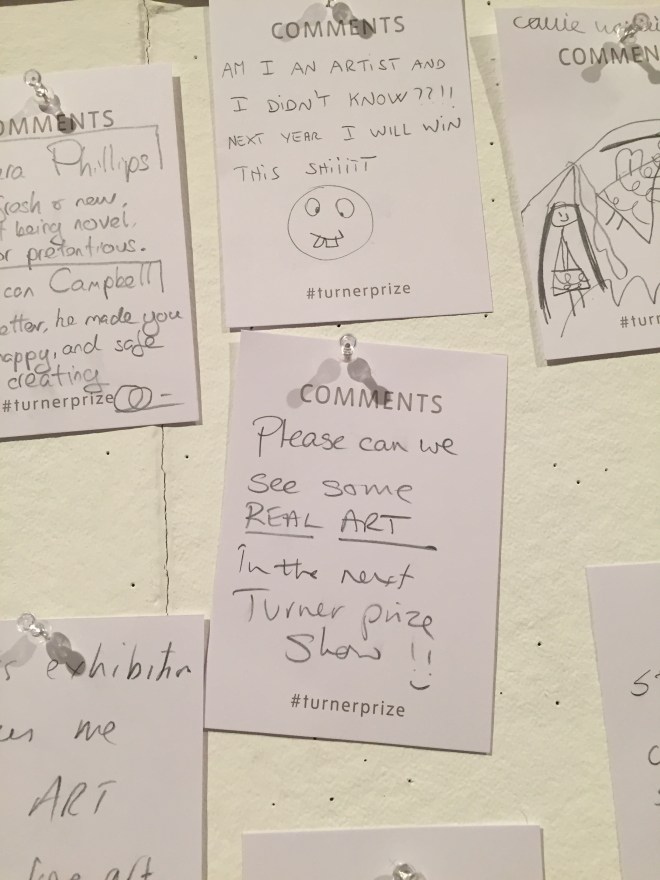 COMMENTS
AM I AN ARTIST AND
I DIDN'T KNOW??!!
NEXT YEAR I WILL WIN
THIS SHIIIIT
#turnerprize
OMMENTS
Phillips
new,
being novel.
or pretentious.
Campbell
etter, he made you
appy, and safe
creating
#turnerprize
COMMEN
#tur
COMMENTS
Please can we
see some
REAL ART
In the next
Turner prize
Show !!
#turnerprize
exhibition
me
ART
art